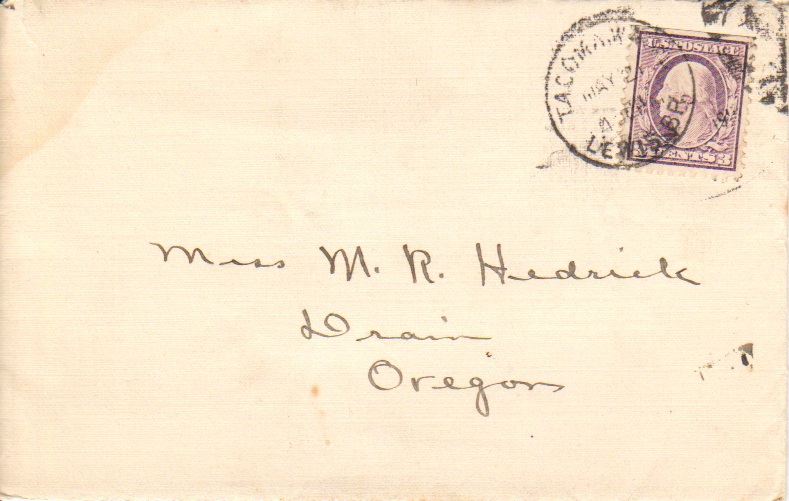 TACOMA, WASH.
MAY 2
4 PM
LEWIS BR.
U.S. POSTAGE
3 CENTS 3
Miss M. R. Hedrick
Drain
Oregon